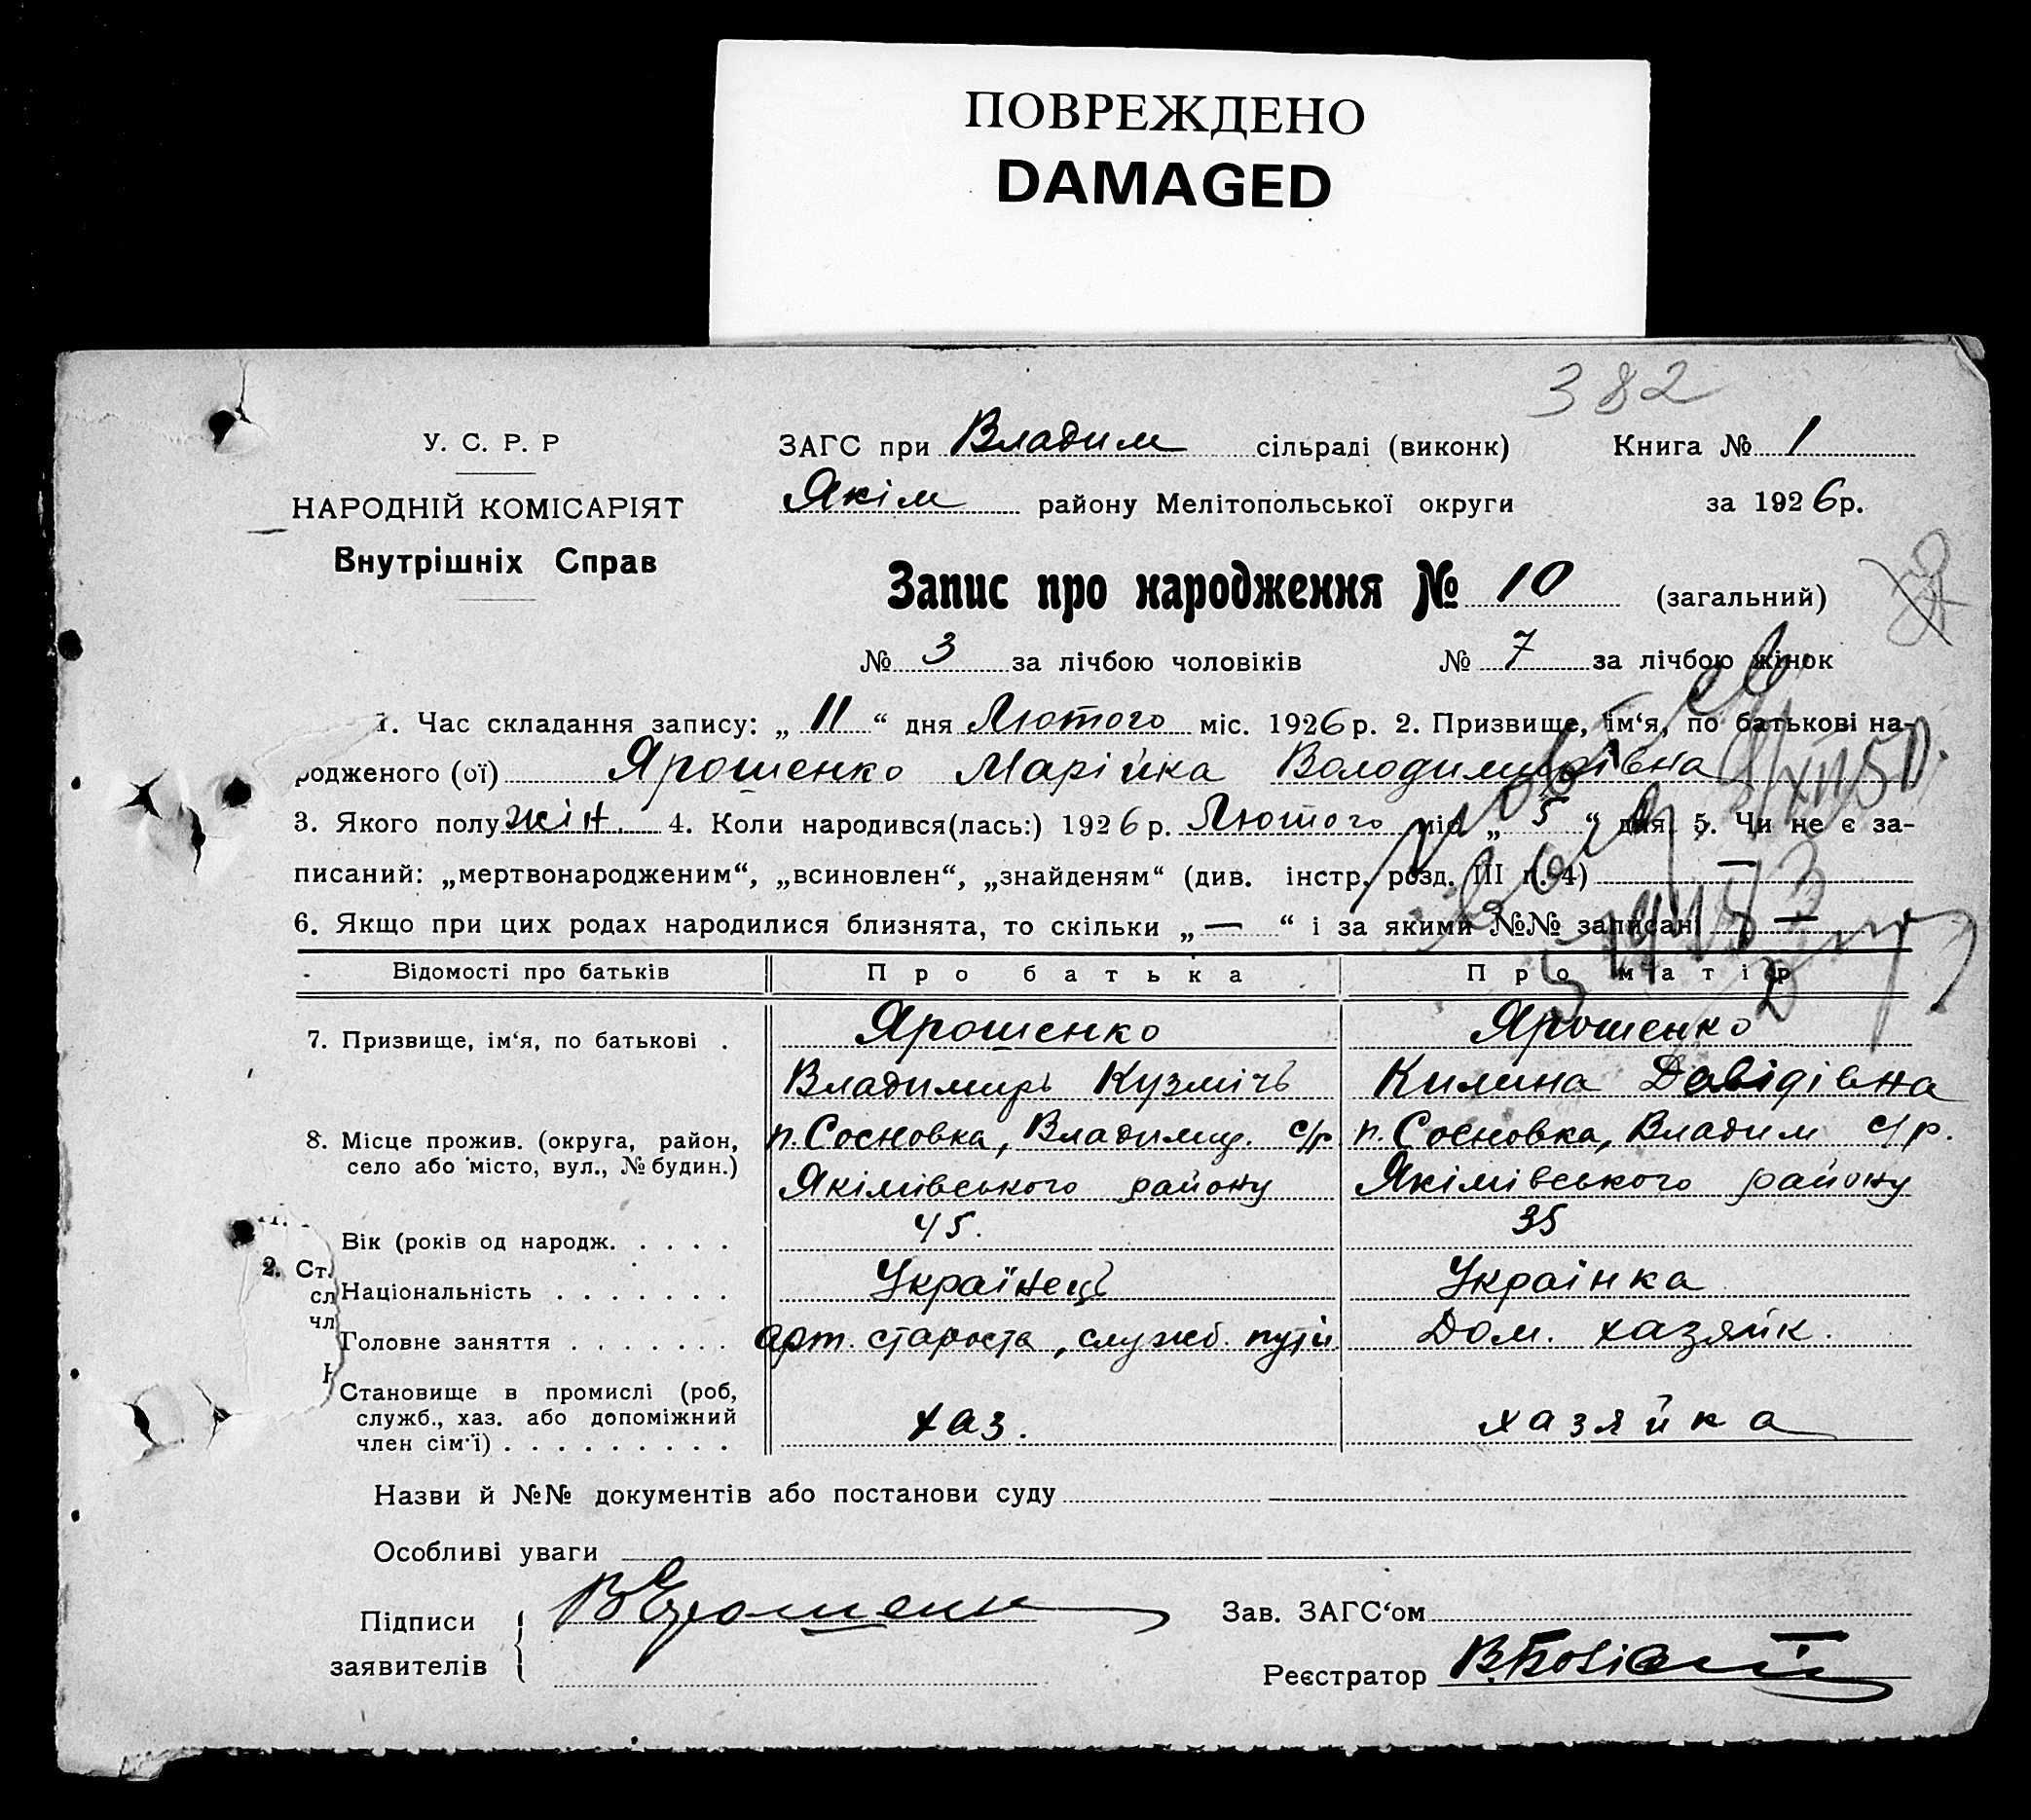 ПОВРЕЖДЕНО
DAMAGED
382
У. С. Р. Р
НАРОДНІЙ КОМІСАРІЯТ
Внутрішніх Справ
ЗАГС при Владим сільраді (виконк) Книга № 1
Якім району Мелітопольської округи за 1926р.
Запис про народження № 10 (загальний)
№ 3 за лічбою чоловіків № 7 за лічбою жінок
1. Час складання запису: „ 11 “ дня Лютого міс. 1926 р. 2. Призвище, ім‘я, по батькові на-
родженого (ої) Ярошенко Марійка Володимирівна
3. Якого полу жін. 4. Коли народився(лась:) 1926 р. Лютого міс „ 5 “ дня. 5. Чи не є за-
писаний: „мертвонародженим“, „всиновлен“, „знайденям“ (див. інстр. розд. III п. 4) —
6. Якщо при цих родах народилися близнята, то скільки „ — “ і за якими №№ записані —
Відомості про батьків Про батька Про матір
7. Призвище, ім‘я, по батькові . Ярошенко Ярошенко
Владимиръ Кузмічъ Килина Давідівна
8. Місце прожив. (округа, район, п. Сосновка, Владимир. с/р п. Сосновка, Владим с/р.
село або місто, вул., № будин.)
Якімівського району Якімівського району
Вік (років од народж. . . . . 45. 35
2. Ст
сл Національність . . . . . . . Українець Українка
чл
Головне заняття . . . . . . . арт. староста, служб. путі. Дом. хазяйк.
Становище в промислі (роб,
служб., хаз. або допоміжний хаз. хазяйка
член сім‘ї) . . . . . . . . .
Назви й №№ документів або постанови суду
Особливі уваги
Підписи ВЯрошенк Зав. ЗАГС‘ом
заявителів Реєстратор